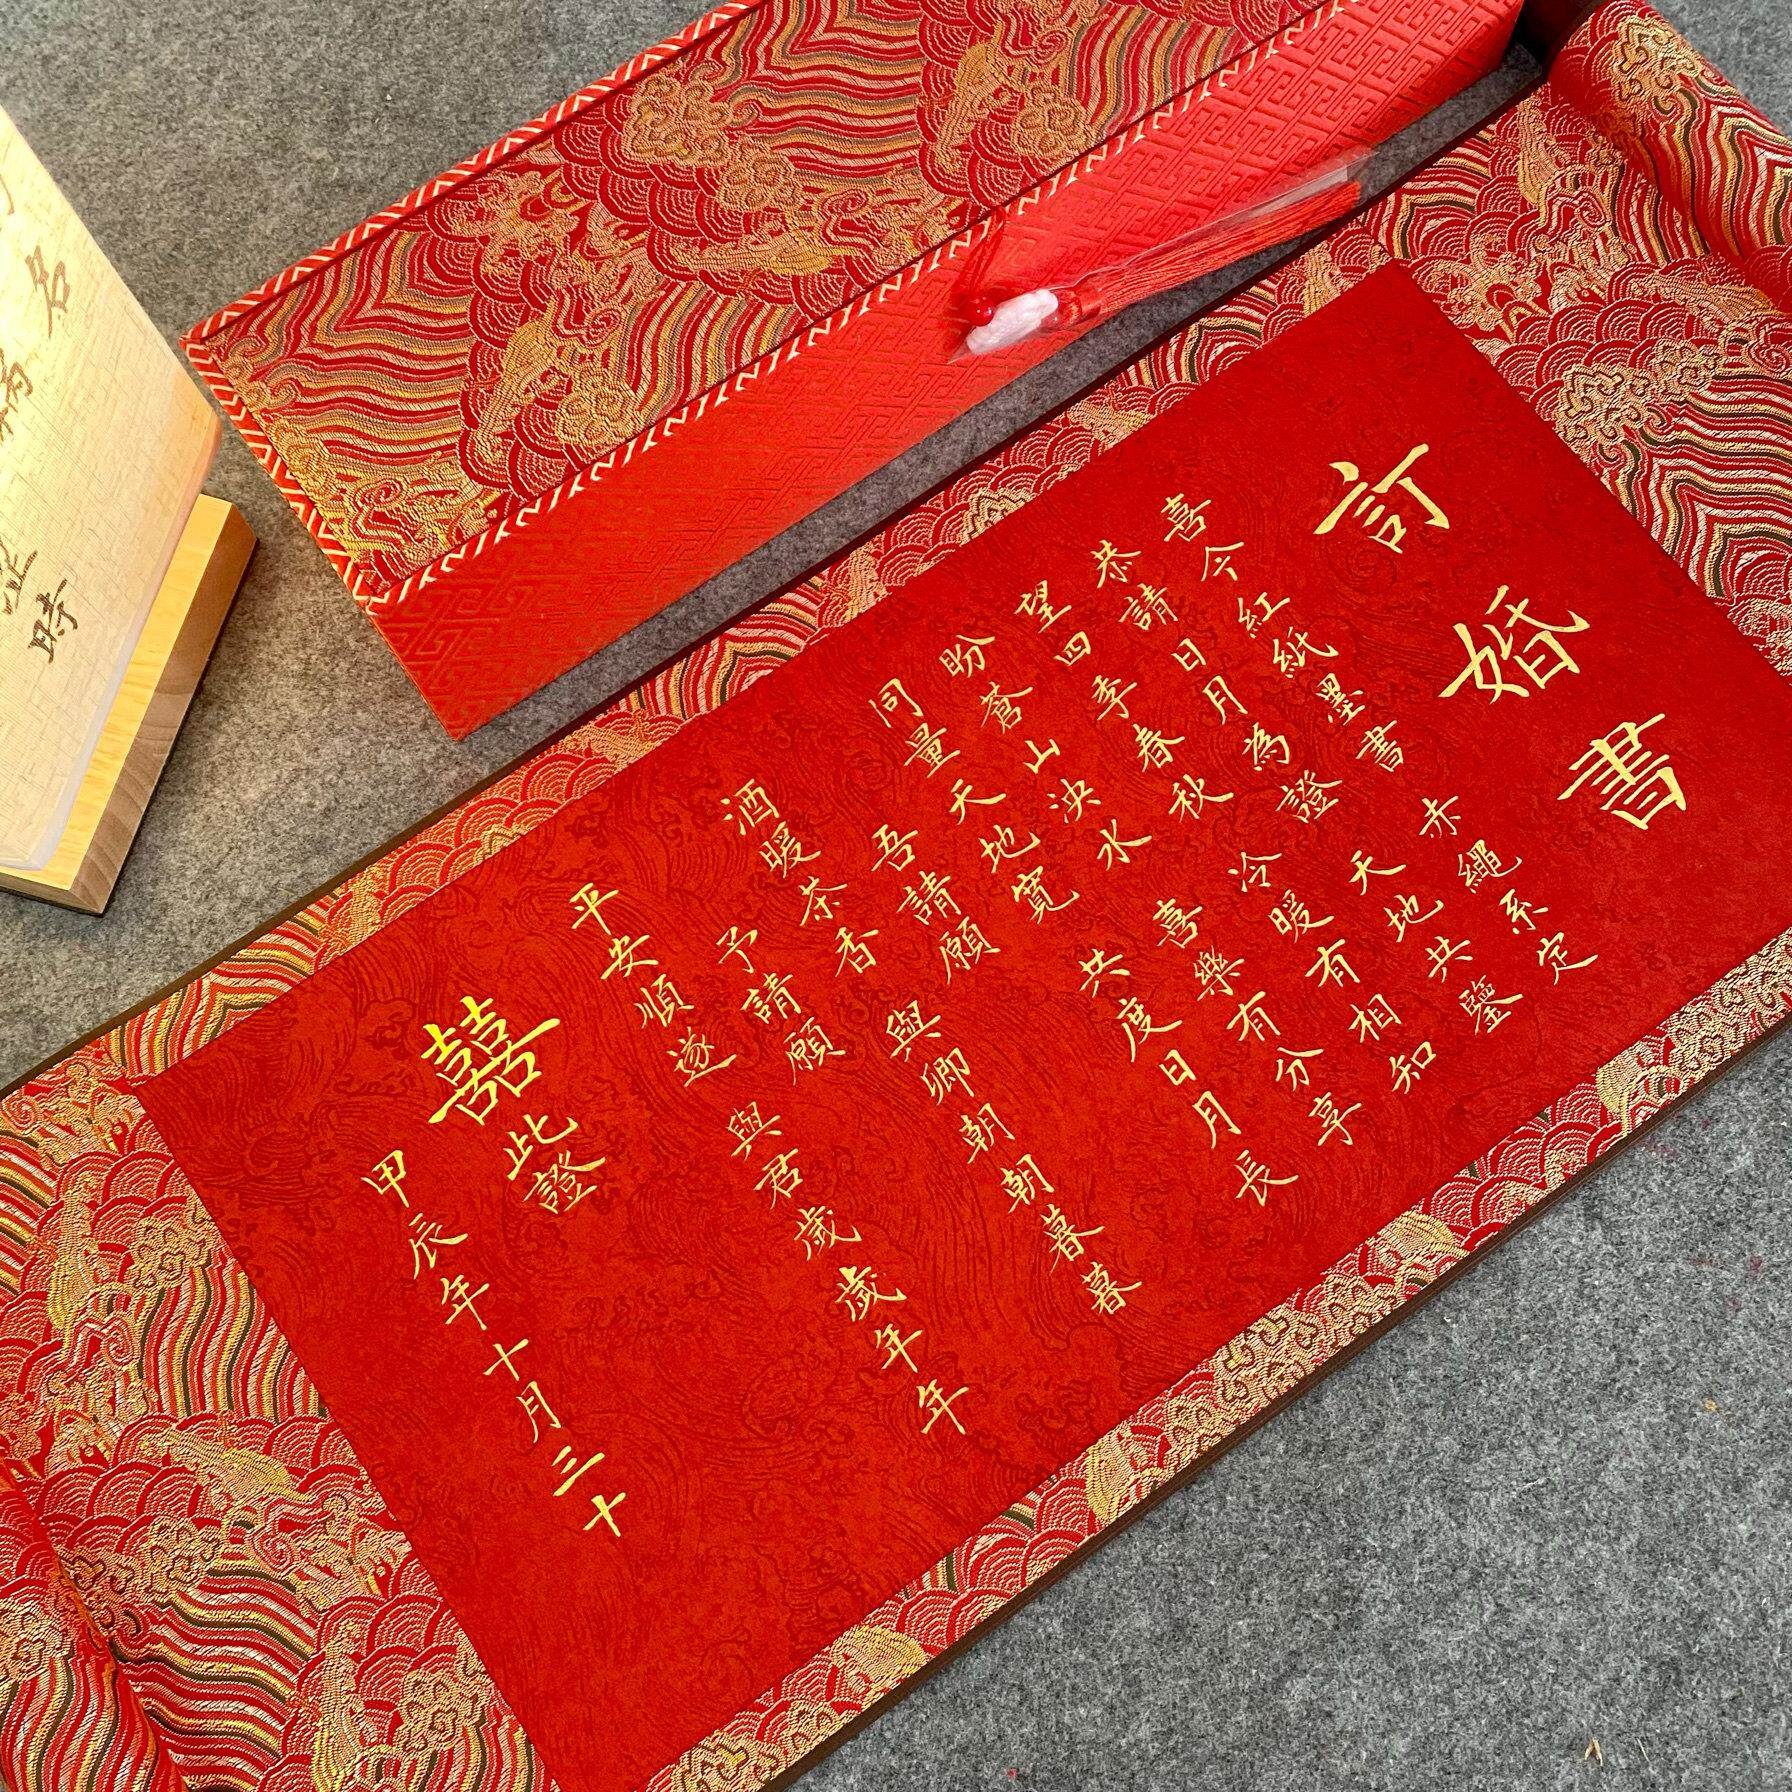 訂婚書
喜今紅紙墨書 赤繩系定
恭請日月為證 天地共鑒
望四季春秋 冷暖有相知
盼蒼山泱水 喜樂有分享
同量天地寬 共度日月長
吾請願
酒暖茶香 與卿朝朝暮暮
予請願
平安順遂 與君歲歲年年
囍此證
甲辰年十月三十
名
時